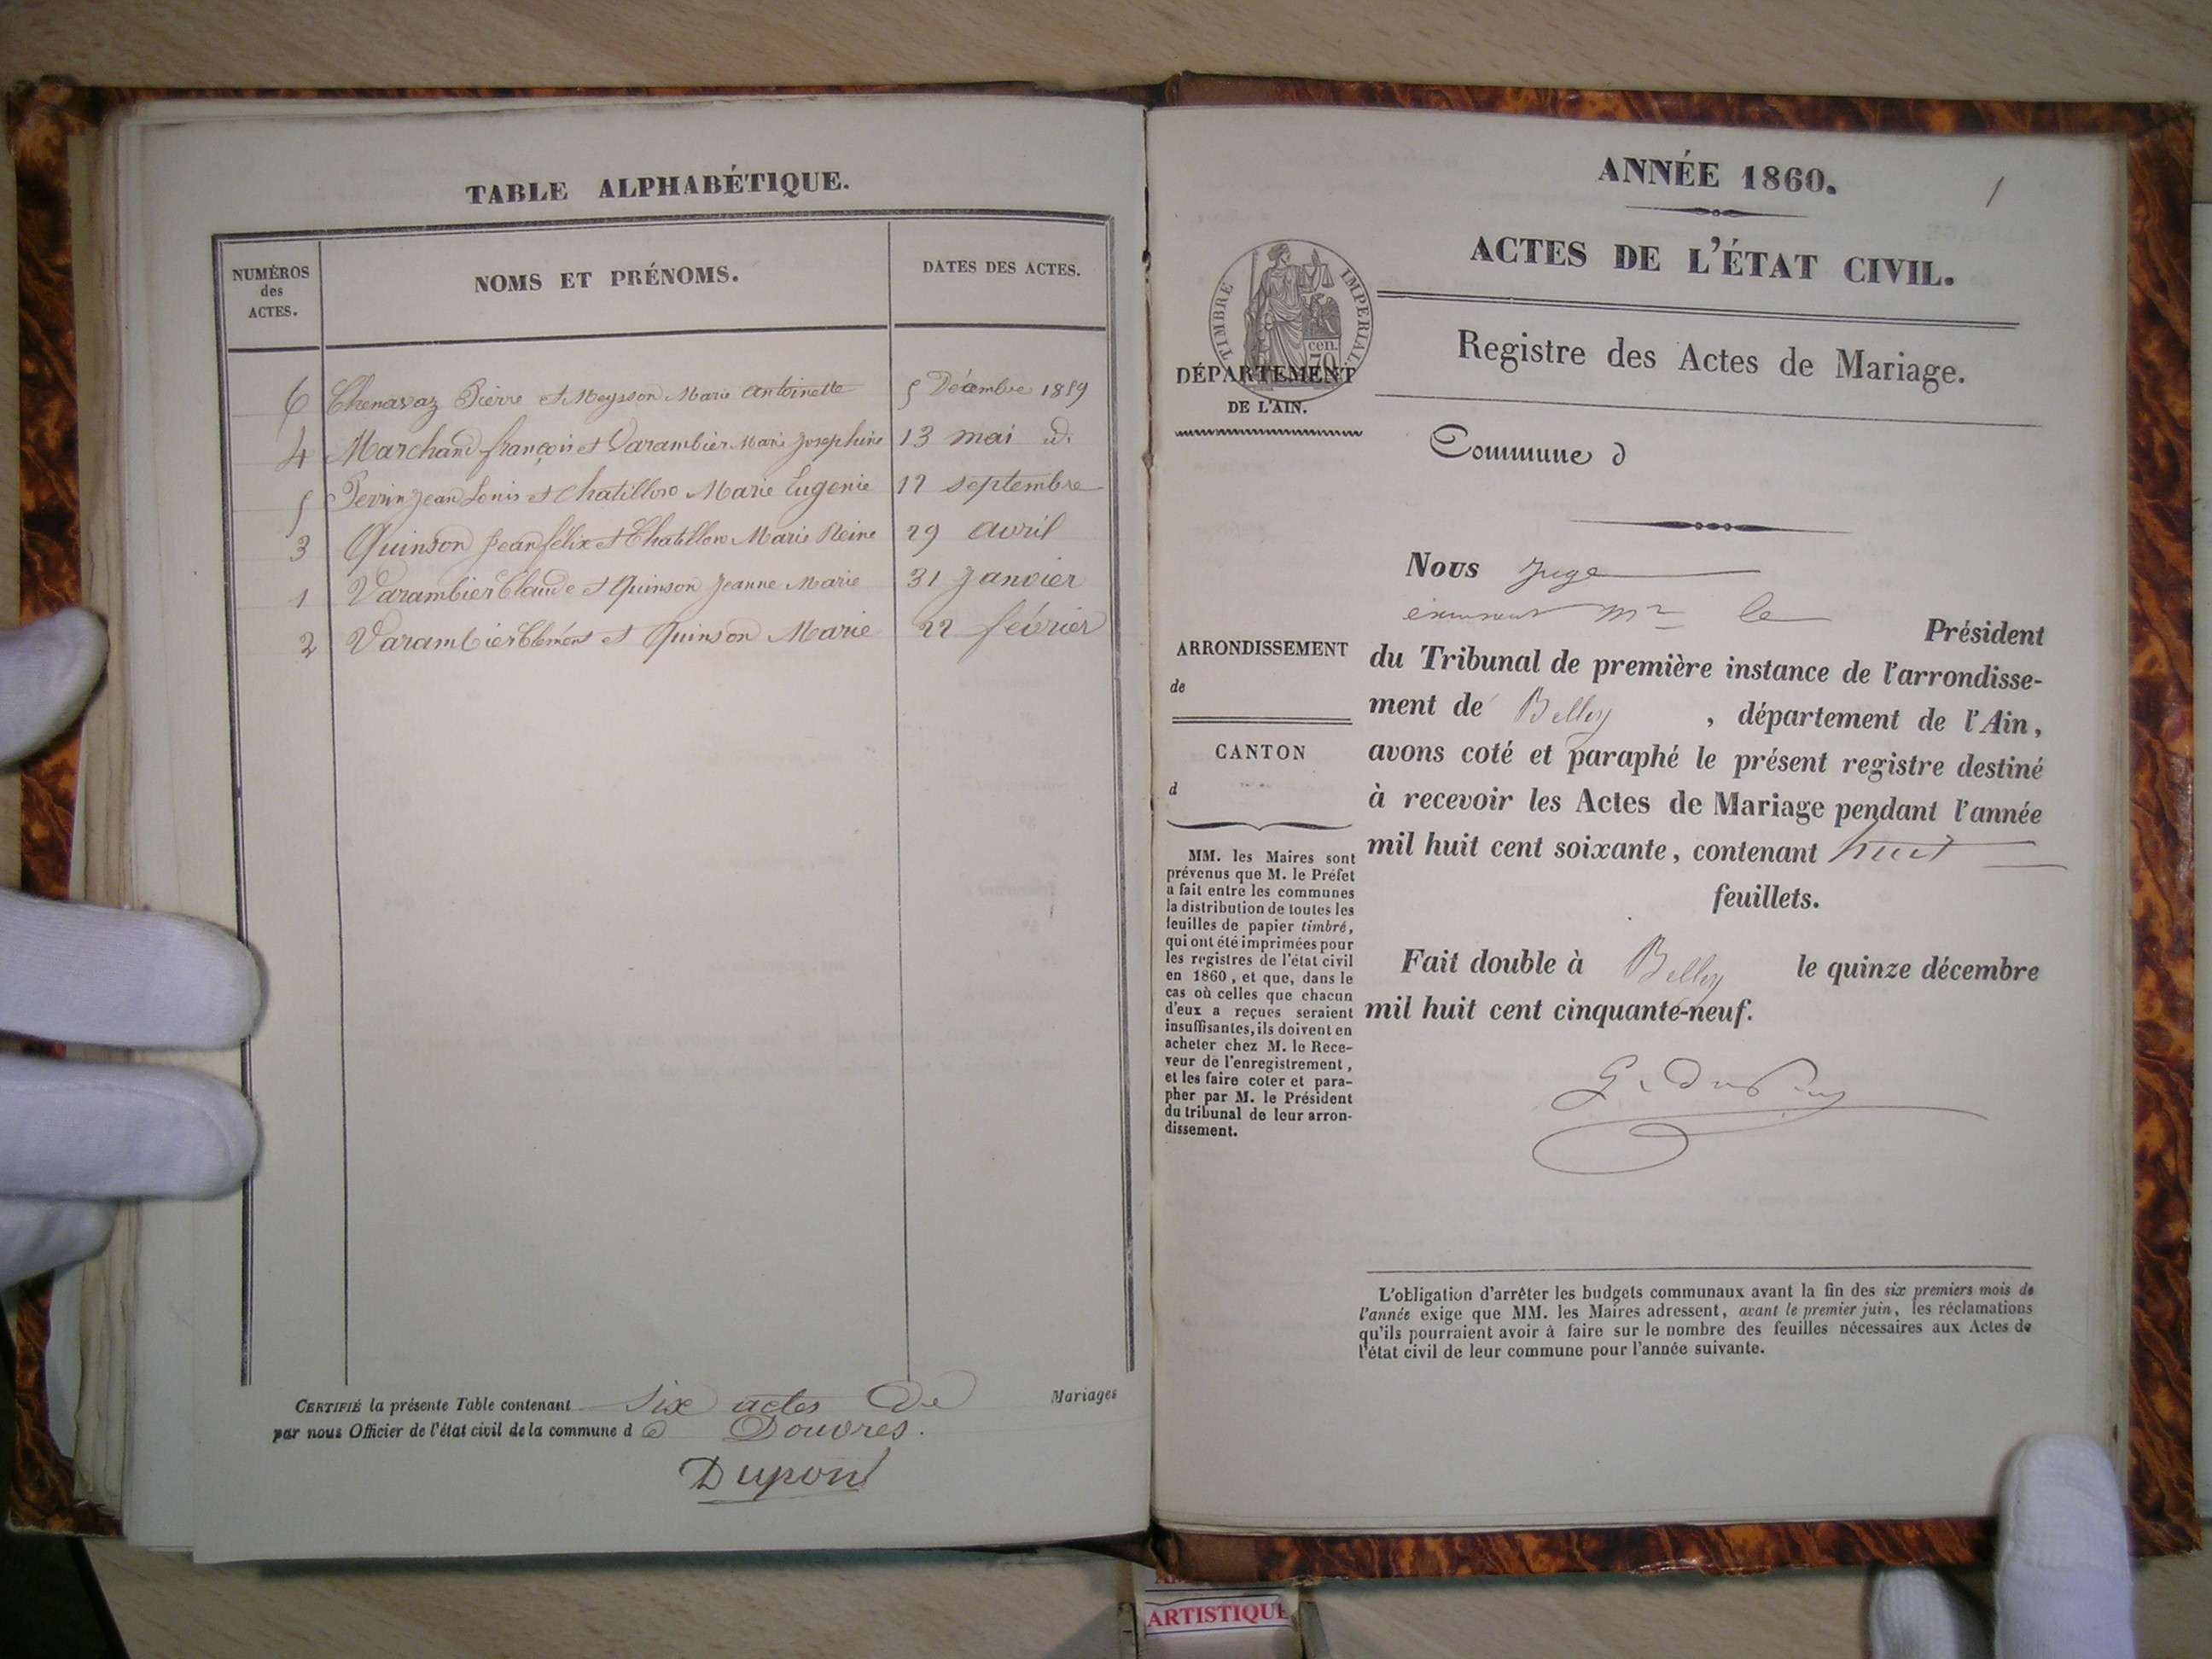 TABLE ALPHABÉTIQUE.
NUMÉROS
des
ACTES.
NOMS ET PRÉNOMS.
DATES DES ACTES.
6 Chenavaz Pierre et Meysson Marie antoinette 5 Décembre 1859
4 Marchand françois et Varambier Marie Josephine 13 mai id.
5 Perrin Jean Louis et Chatillon Marie Eugenie 12 septembre
3 Quinson Jean félix et Chatillon Marie Reine 29 avril
1 Varambier Claude et Quinson Jeanne Marie 31 Janvier
2 Varambier Clément et Quinson Marie 22 février
CERTIFIÉ la présente Table contenant six actes De Mariages
par nous Officier de l'état civil de la commune d e Douvres.
Dupont
ANNÉE 1860.
1
ACTES DE L'ÉTAT CIVIL.
TIMBRE IMPERIAL
cen.
70
Registre des Actes de Mariage.
DÉPARTEMENT
DE L'AIN.
Commune d
ARRONDISSEMENT
de
CANTON
d
MM. les Maires sont
prévenus que M. le Préfet
a fait entre les communes
la distribution de toutes les
feuilles de papier timbré,
qui ont été imprimées pour
les registres de l'état civil
en 1860, et que, dans le
cas où celles que chacun
d'eux a reçues seraient
insuffisantes, ils doivent en
acheter chez M. le Rece-
veur de l'enregistrement,
et les faire coter et para-
pher par M. le Président
du tribunal de leur arron-
dissement.
Nous Juge
mr le Président
du Tribunal de première instance de l'arrondisse-
ment de Belley, département de l'Ain,
avons coté et paraphé le présent registre destiné
à recevoir les Actes de Mariage pendant l'année
mil huit cent soixante, contenant huit
feuillets.
Fait double à Belley le quinze décembre
mil huit cent cinquante-neuf.
L'obligation d'arrêter les budgets communaux avant la fin des six premiers mois de
l'année exige que MM. les Maires adressent, avant le premier juin, les réclamations
qu'ils pourraient avoir à faire sur le nombre des feuilles nécessaires aux Actes de
l'état civil de leur commune pour l'année suivante.
ARTISTIQUE